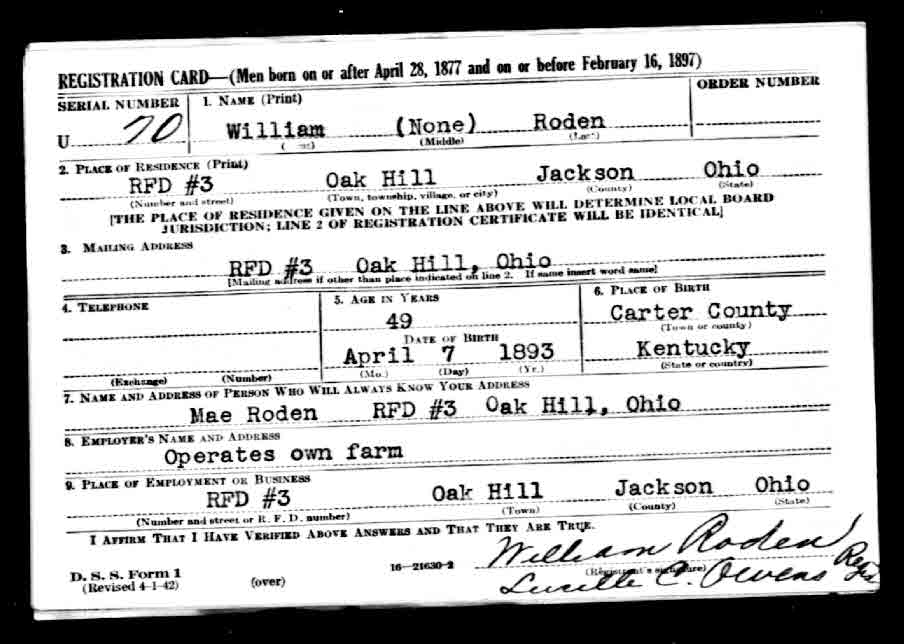 REGISTRATION CARD—(Men born on or after April 28, 1877 and on or before February 16, 1897)
SERIAL NUMBER
1. NAME (Print)
ORDER NUMBER
U 70
William (None) Roden
(Middle) (Last)
2. PLACE OF RESIDENCE (Print)
RFD #3 Oak Hill Jackson Ohio
(Number and street) (Town, township, village, or city) (County) (State)
[THE PLACE OF RESIDENCE GIVEN ON THE LINE ABOVE WILL DETERMINE LOCAL BOARD
JURISDICTION; LINE 2 OF REGISTRATION CERTIFICATE WILL BE IDENTICAL]
3. MAILING ADDRESS
RFD #3 Oak Hill, Ohio
[Mailing address if other than place indicated on line 2. If same insert word same]
4. TELEPHONE
5. AGE IN YEARS
6. PLACE OF BIRTH
49
Carter County
(Town or county)
DATE OF BIRTH
April 7 1893
Kentucky
(Exchange) (Number)
(Mo.) (Day) (Yr.)
(State or country)
7. NAME AND ADDRESS OF PERSON WHO WILL ALWAYS KNOW YOUR ADDRESS
Mae Roden RFD #3 Oak Hill, Ohio
8. EMPLOYER'S NAME AND ADDRESS
Operates own farm
9. PLACE OF EMPLOYMENT OR BUSINESS
RFD #3 Oak Hill Jackson Ohio
(Number and street or R. F. D. number) (Town) (County) (State)
I AFFIRM THAT I HAVE VERIFIED ABOVE ANSWERS AND THAT THEY ARE TRUE.
William Roden
D. S. S. Form 1
(Revised 4-1-42) (over) 16—21630-2 (Registrant's signature)
Lucille C. Owens